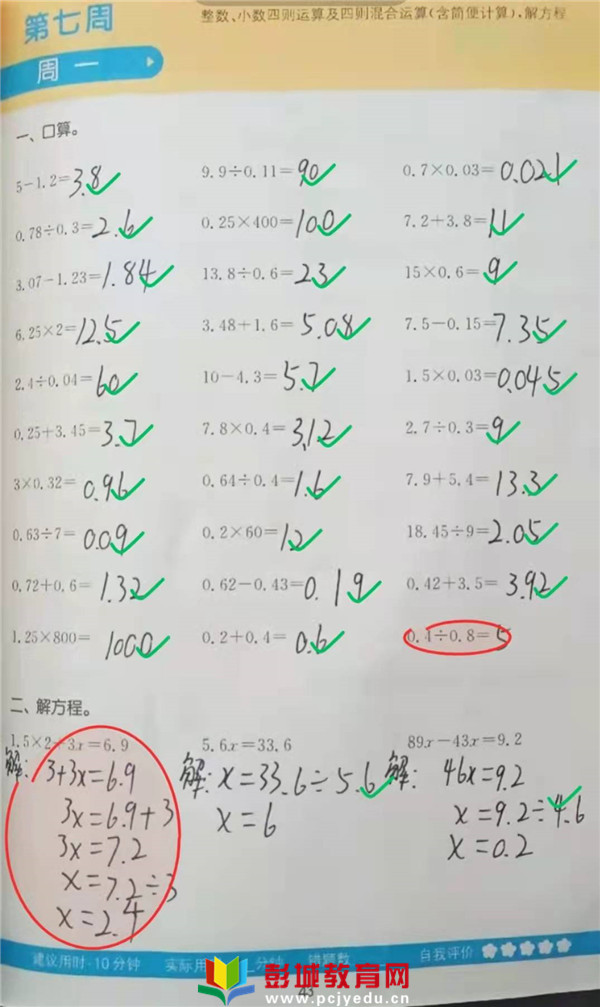 第七周
整数、小数四则运算及四则混合运算(含简便计算),解方程
周一
一、口算。
5-1.2=3.8 9.9÷0.11=90 0.7×0.03=0.021
0.78÷0.3=2.6 0.25×400=100 7.2+3.8=11
3.07-1.23=1.84 13.8÷0.6=23 15×0.6=9
6.25×2=12.5 3.48+1.6=5.08 7.5-0.15=7.35
2.4÷0.04=60 10-4.3=5.7 1.5×0.03=0.045
0.25+3.45=3.7 7.8×0.4=3.12 2.7÷0.3=9
3×0.32=0.96 0.64÷0.4=1.6 7.9+5.4=13.3
0.63÷7=0.09 0.2×60=12 18.45÷9=2.05
0.72+0.6=1.32 0.62-0.43=0.19 0.42+3.5=3.92
1.25×800=1000 0.2+0.4=0.6 0.4÷0.8=5
二、解方程。
1.5×2+3x=6.9 5.6x=33.6 89x-43x=9.2
解: 3+3x=6.9 解: x=33.6÷5.6 解: 46x=9.2
3x=6.9+3 x=6 x=9.2÷4.6
3x=7.2 x=0.2
x=7.2÷3
x=2.4
建议用时·10分钟 实际用 分钟 错题数 自我评价
彭城教育网
www.pcjyedu.cn
43